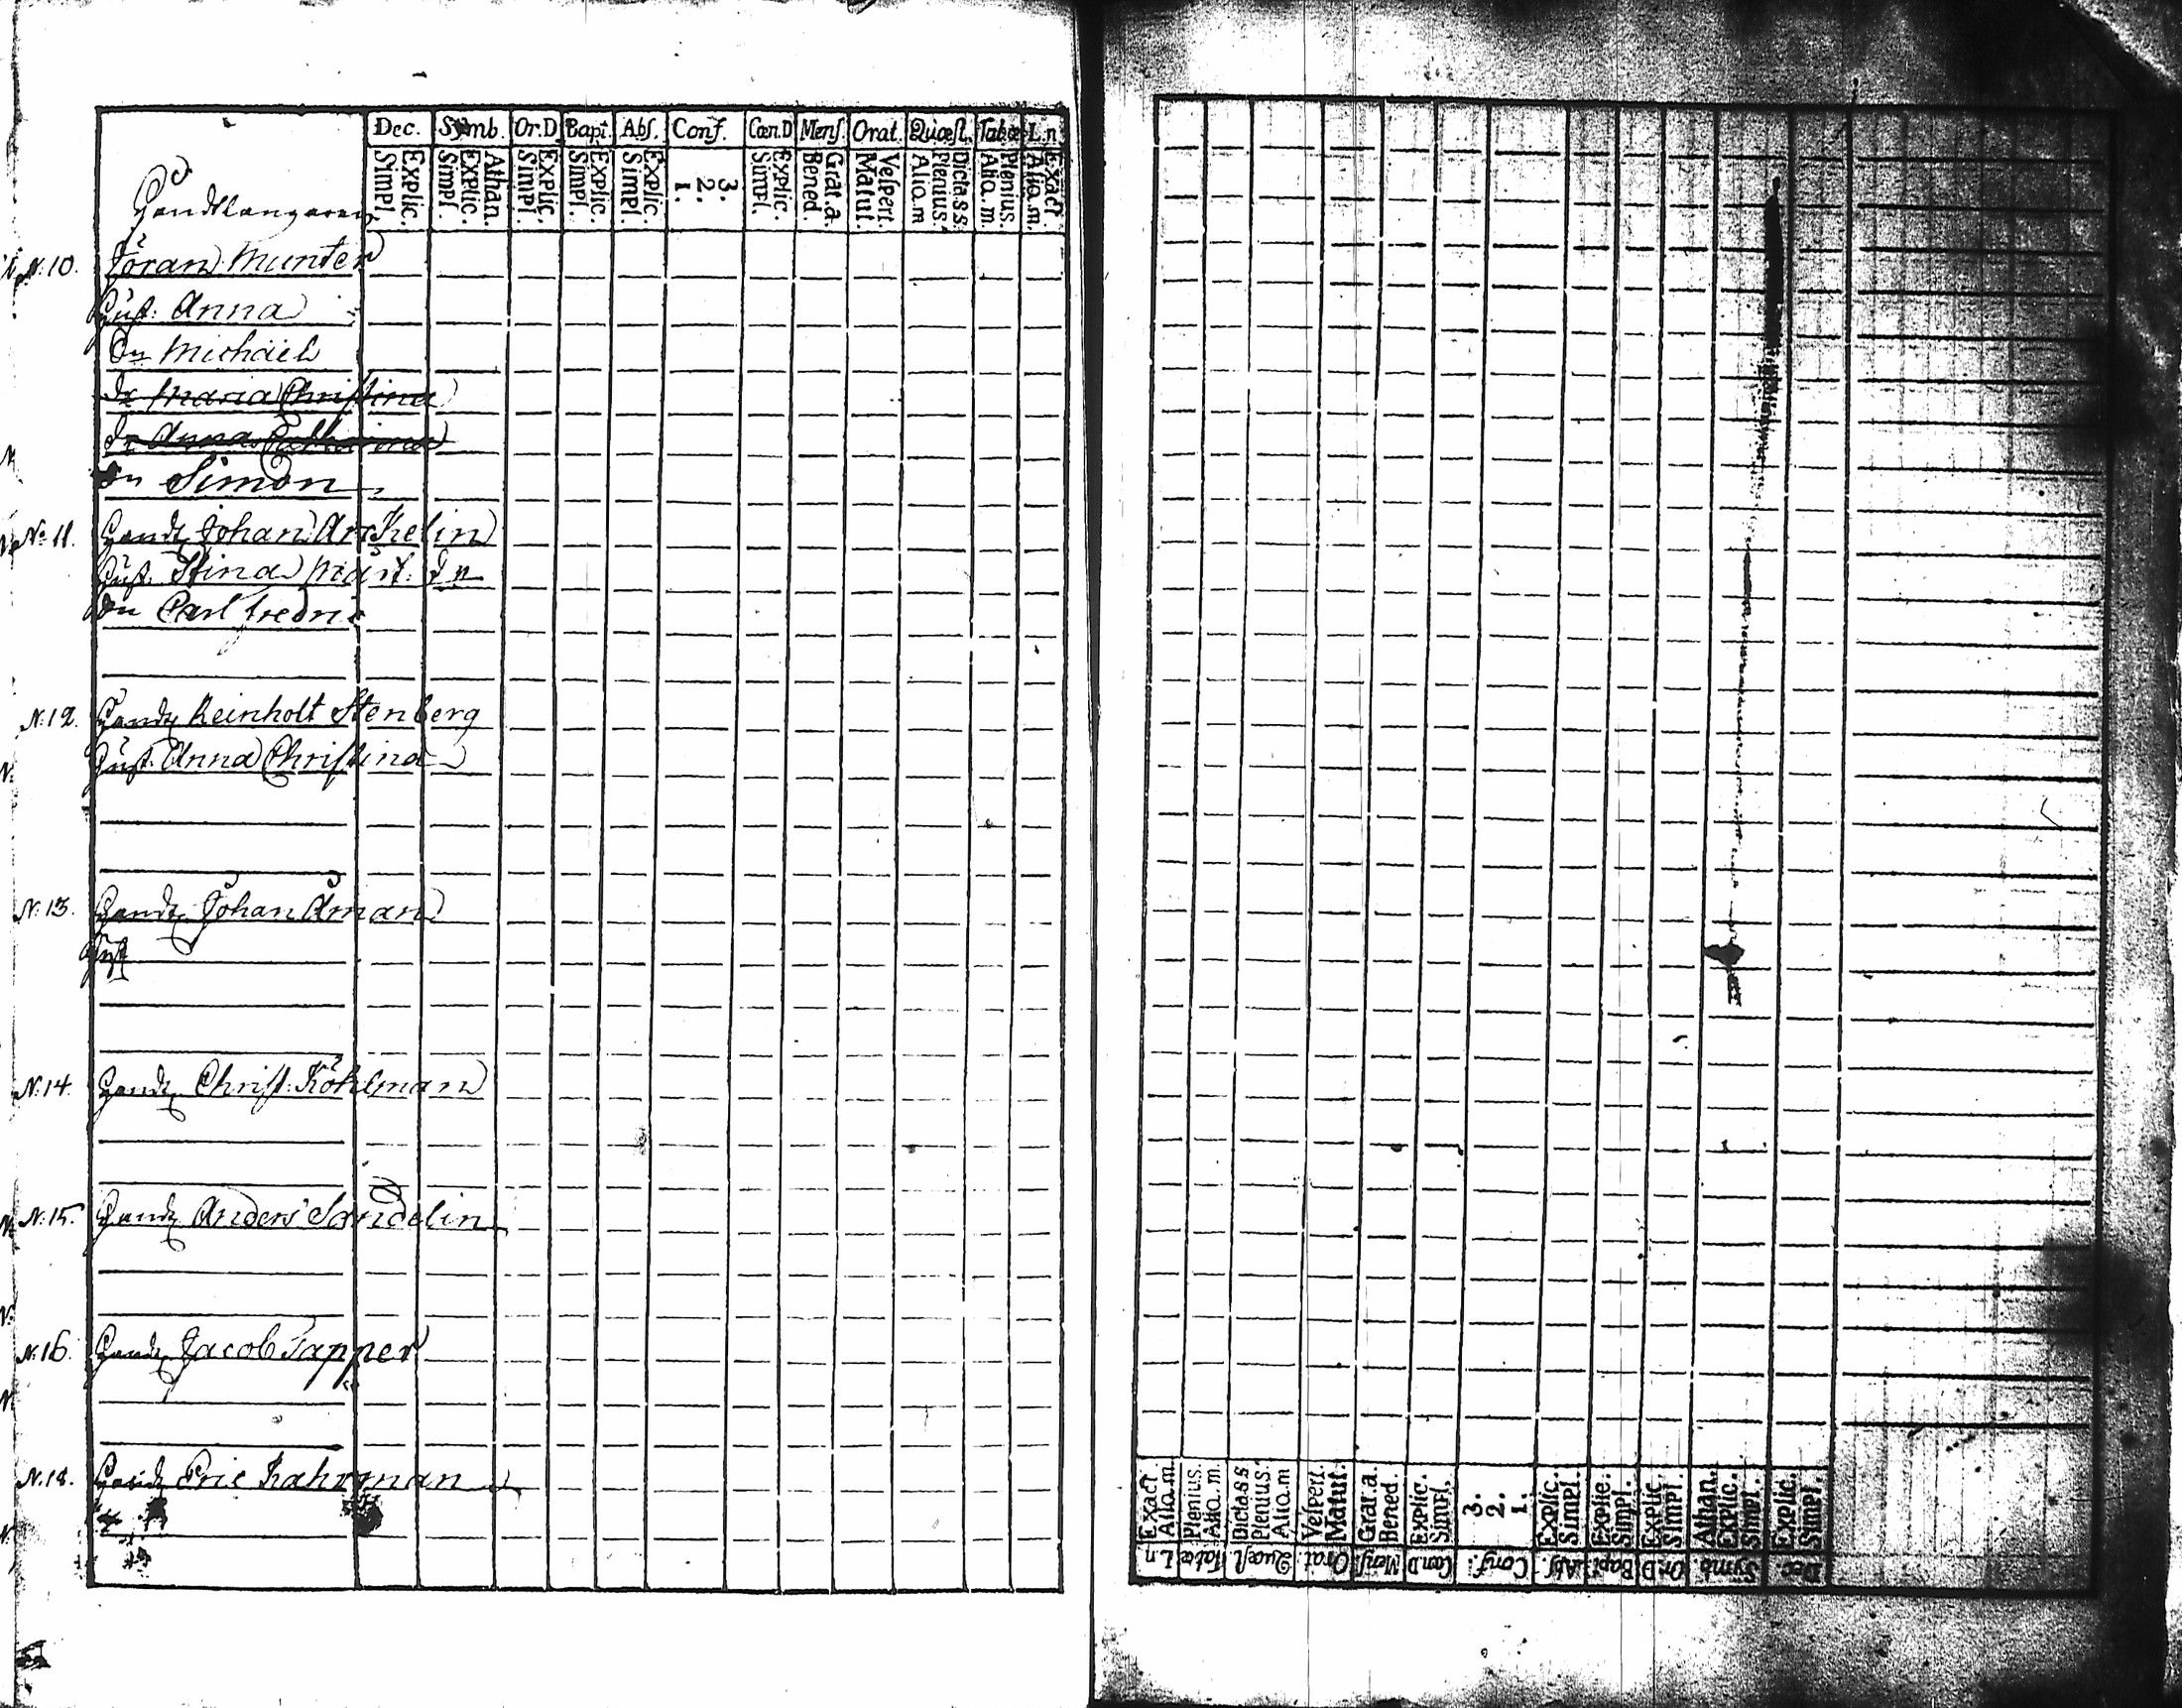 Dec. Symb. Or.D Bapt. Abs. Conf. Cœn.D Mens. Orat. Quæst. Tabæ L.n
Simpl. Explic. Simpl. Explic. Athan. Simpl. Explic. Simpl. Explic. Simpl. Explic. 1. 2. 3. Simpl. Explic. Bened. Grat.a. Matut. Vespert. Alio.m Plenius. Dicta.s.s Alio.m. Plenius. Alio.m. Exact
Handtlangaren
N:10. Jöran Munter
Hust: Anna
Sn Michäel
Dr Maria Christina
Dr Anna Catharina
Sn Simon
No 11. Handt Johan Arkelin
Hust. Stina Märt. dr
Sn Carl fredric
N:12. Handt Reinholt Stenberg
Hust. Anna Christina
N:13. Handt Johan Åman
Hust
N:14 Handt Christ: Köhlman
N:15. Handt Anders Sandelin
N:16. Handt Jacob Tapper
N:18. Handt Eric Kahrman
Exact Alio.m. Plenius. Alio.m. Dicta.s.s Plenius. Alio.m Vespert. Matut. Grat.a. Bened. Explic. Simpl. 3. 2. 1. Explic. Simpl. Explic. Simpl. Explic. Simpl. Athan. Explic. Simpl. Explic. Simpl.
L.n Tabæ Quæst. Orat. Mens. Cœn.D Conf. Abs. Bapt. Or.D Symb. Dec.